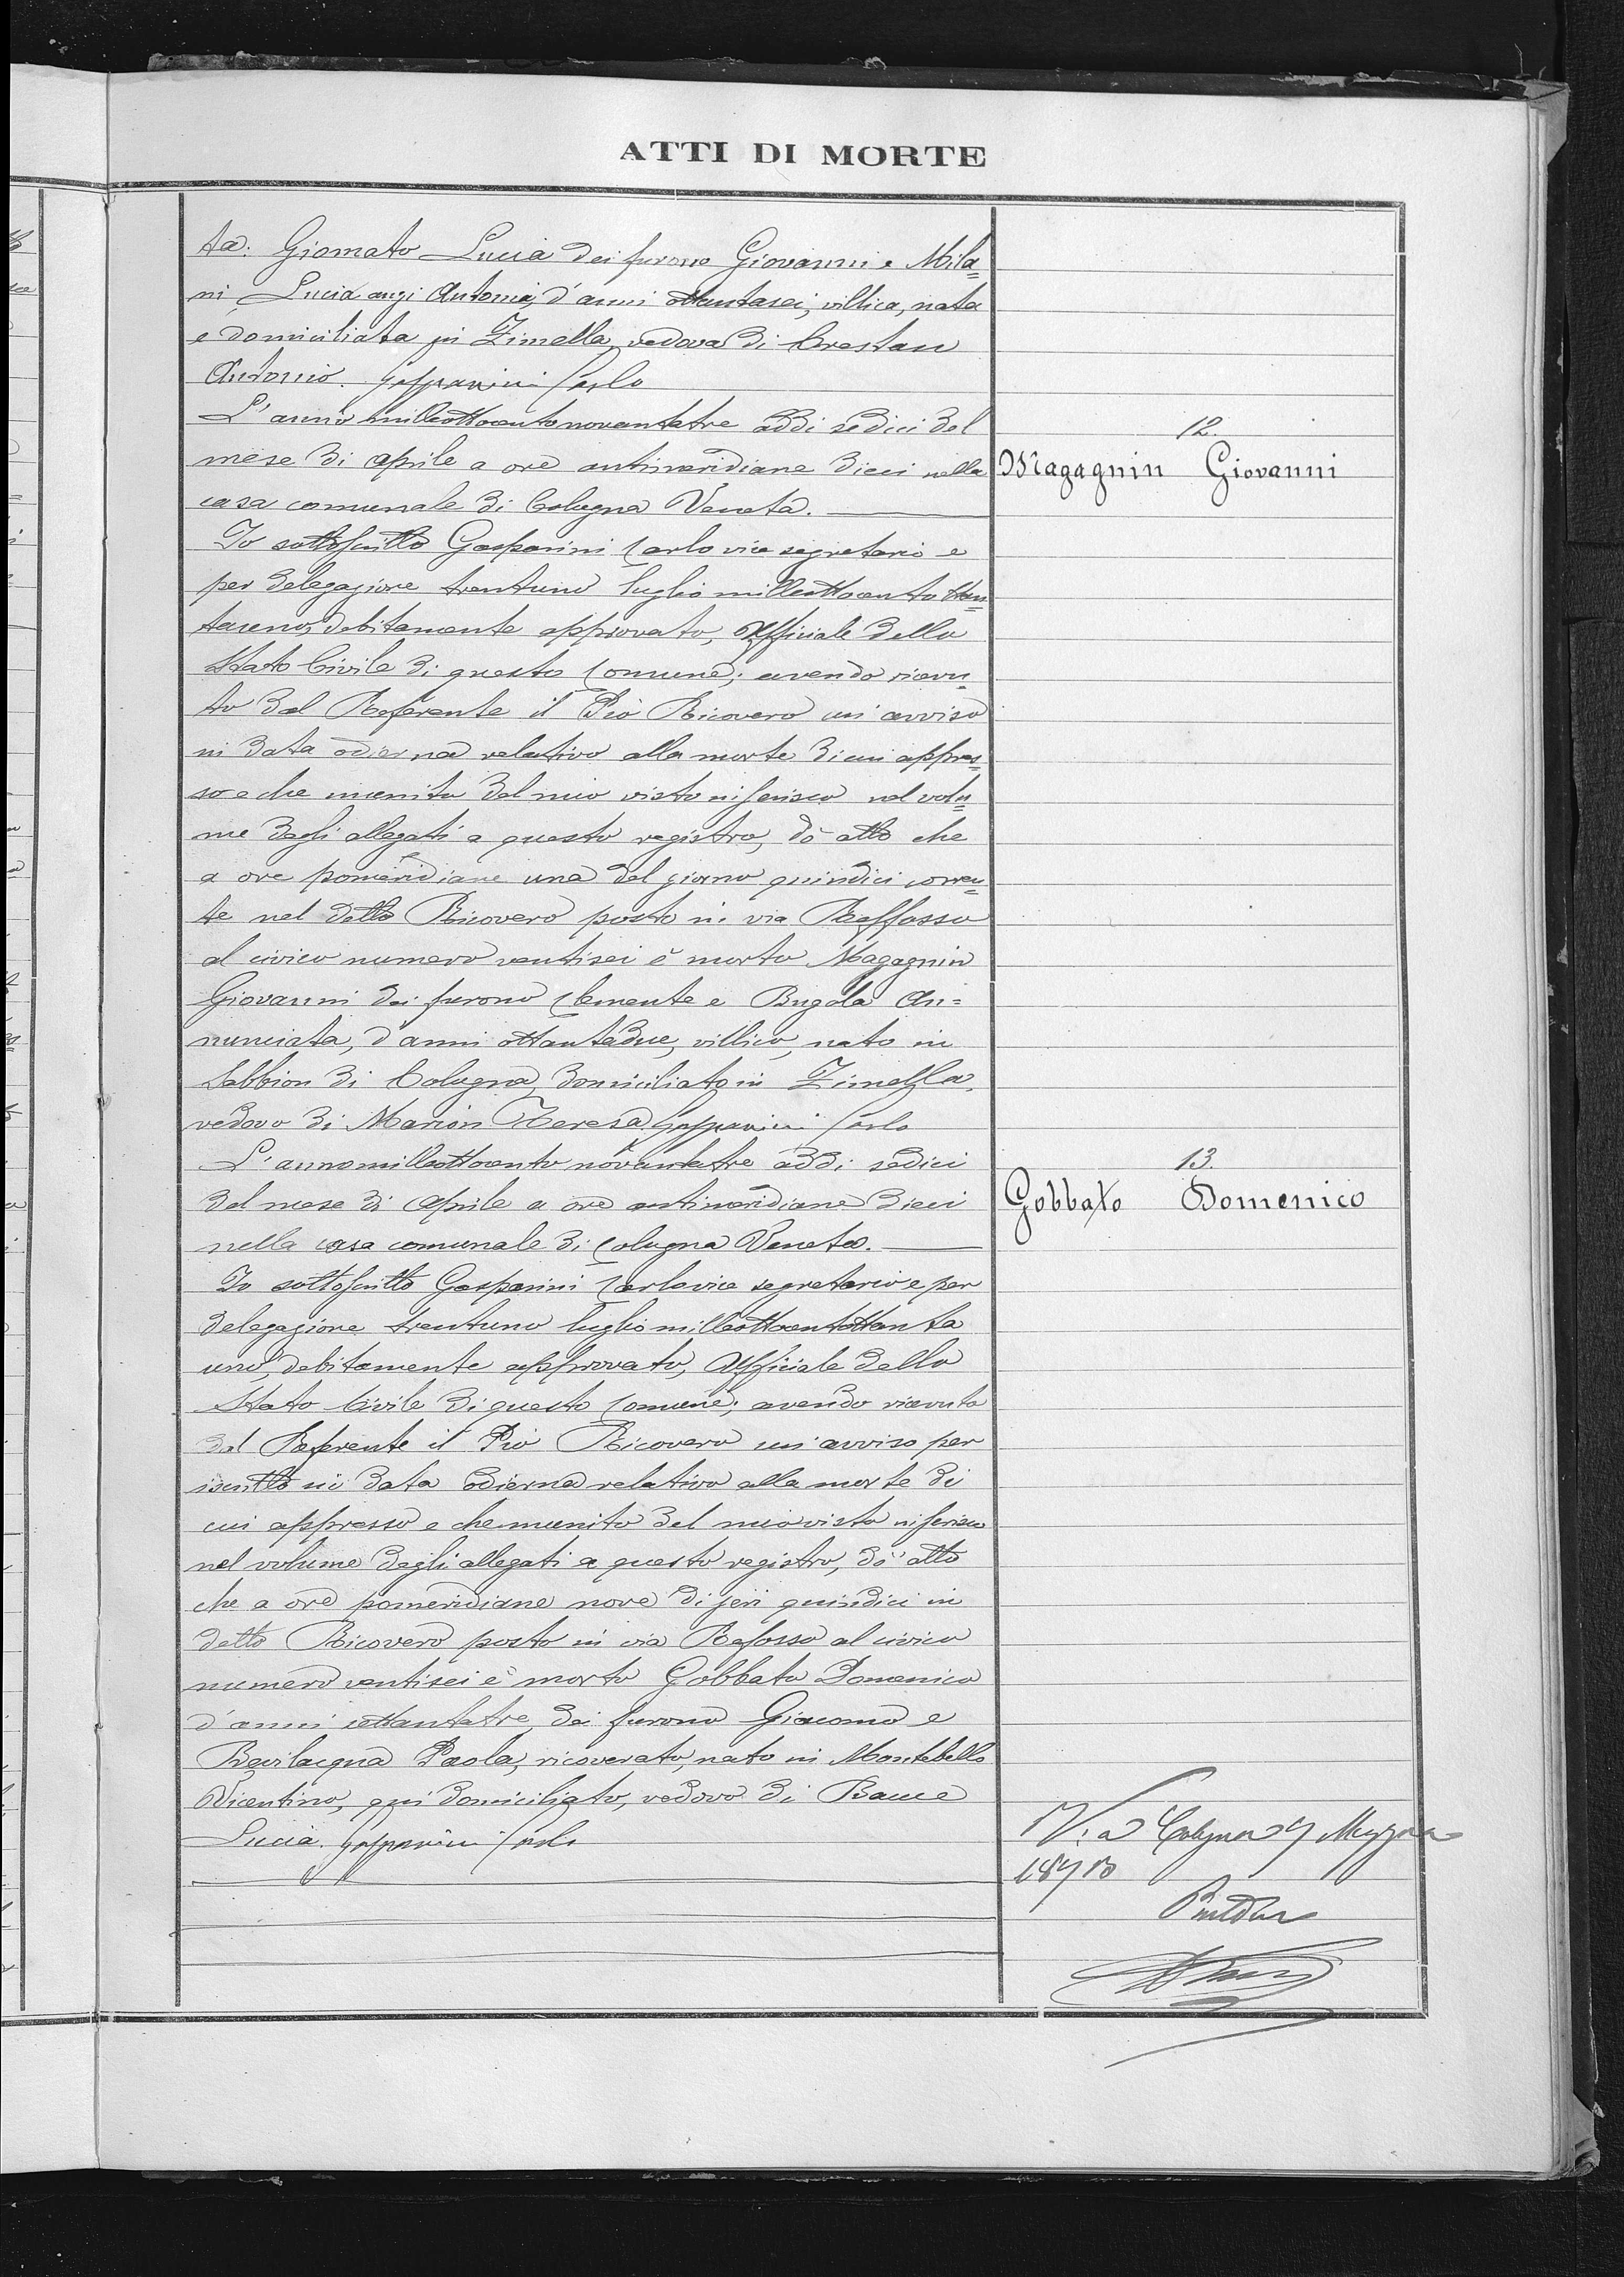 ATTI DI MORTE
ta: Giomato Lucia dei furono Giovanni e Mila=
ni, Lucia anzi Antonia, d'anni ottantasei, villica, nata
e domiciliata in Zimella, vedova di Crestan
Antonio. Gasparini Carlo
L'anno milleottocentonovantatre addi sedici del
mese di Aprile a ore antimeridiane dieci nella
casa comunale di Cologna Veneta.
12.
Magagnin Giovanni
Io sottoscritto Gasparini Carlo vice segretario e
per delegazione trentuno luglio milleottocentottan=
tauno, debitamente approvato, Officiale dello
Stato Civile di questo Comune; avendo ricevu=
to dal Referente il Pio Ricovero un'avviso
in data odierna relativo alla morte di cui appres=
so e che munito del mio visto inserisco nel volu=
me degli allegati a questo registro, dò atto che
a ore pomeridiane una del giorno quindici corren=
te nel detto Ricovero posto in via Reffosso
al civico numero ventisei è morto Magagnin
Giovanni dei furono Clemente e Bugola An=
nunciata, d'anni ottantadue, villico, nato in
Sabbion di Cologna, domiciliato in Zimella,
vedovo di Marion Teresa. Gasparini Carlo
L'anno milleottocento novantatre addi sedici
del mese di Aprile a ore antimeridiane dieci
nella casa comunale di Cologna Veneta.
13.
Gobbato Domenico
Io sottoscritto Gasparini Carlo vice segretario e per
delegazione trentuno luglio milleottocentottanta
uno, debitamente approvato, Officiale dello
Stato Civile di questo Comune; avendo ricevuto
dal Referente il Pio Ricovero un'avviso per
iscritto in data odierna relativo alla morte di
cui appresso e che munito del mio visto inserisco
nel volume degli allegati a questo registro, dò atto
che a ore pomeridiane nove di jeri quindici in
detto Ricovero posto in via Refosso al civico
numero ventisei è morto Gobbato Domenico
d'anni settantatre, dei furono Giacomo e
Bevilacqua Paola, ricoverato, nato in Montebello
Vicentino, qui domiciliato, vedovo di Bauce
Lucia. Gasparini Carlo